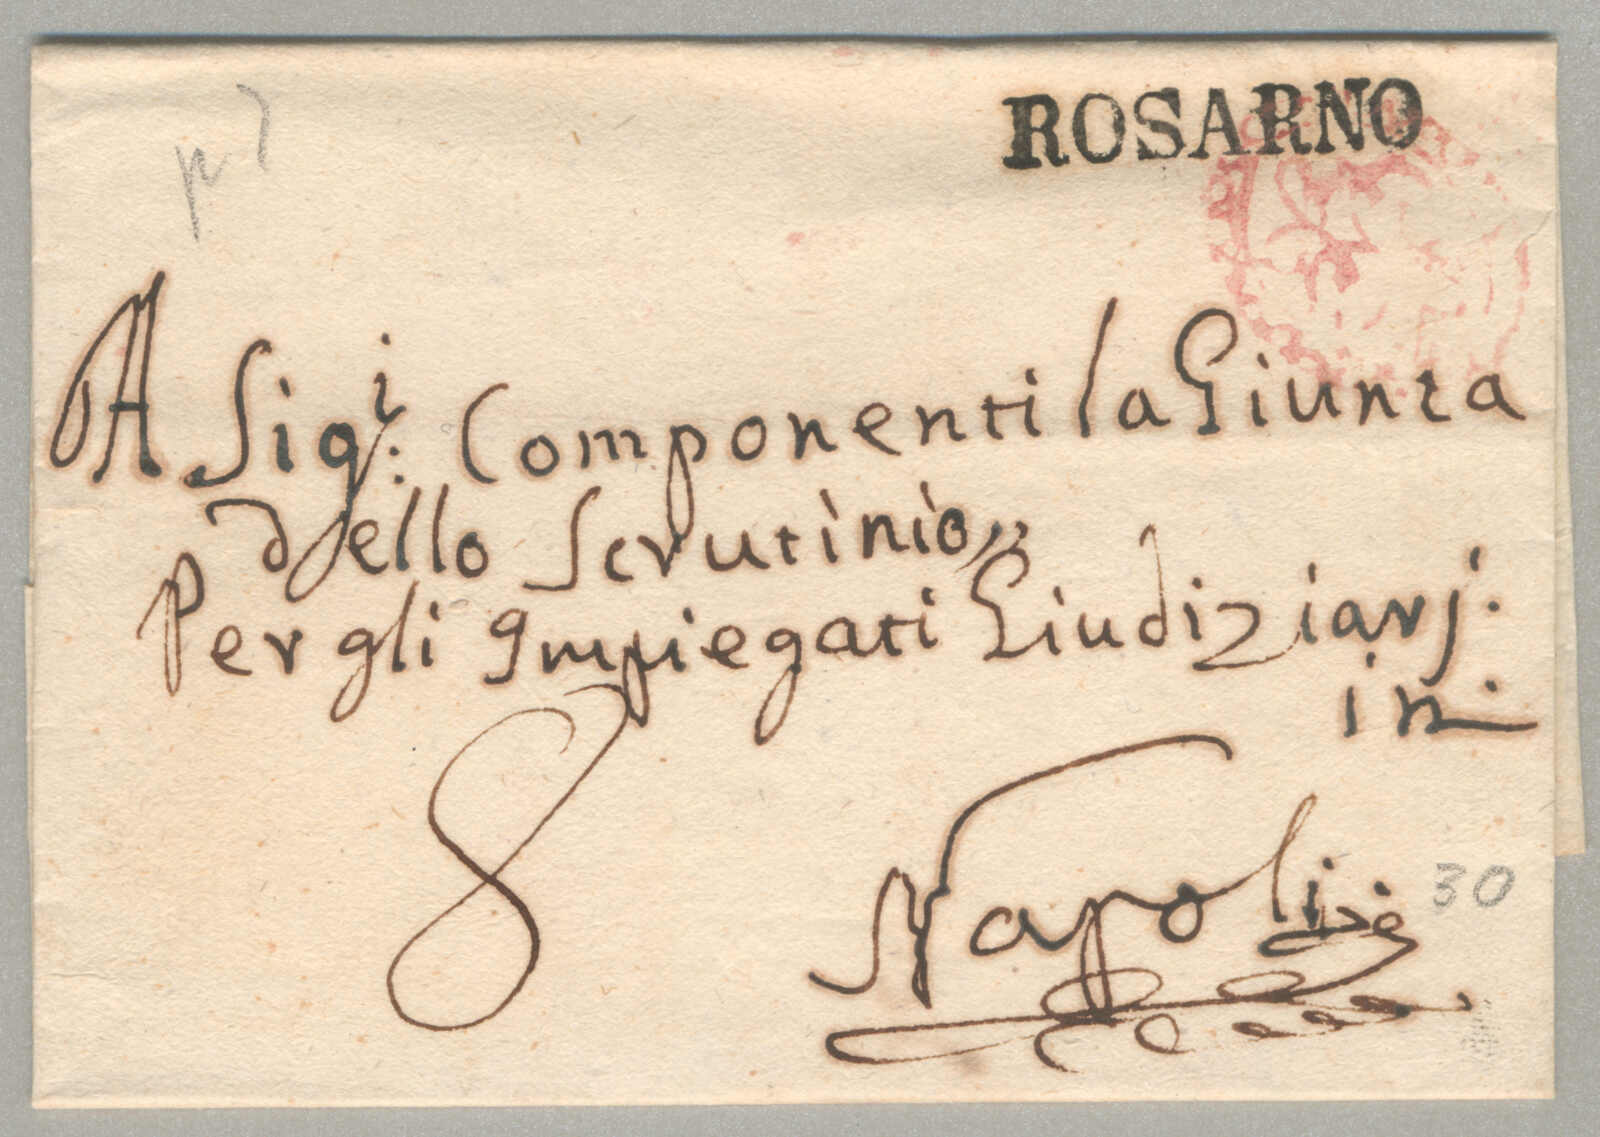 ROSARNO
A Sigi: Componenti la Giunta
dello Scrutinio,,
Per gli Impiegati Giudiziarj:
in
8
Napoli
30